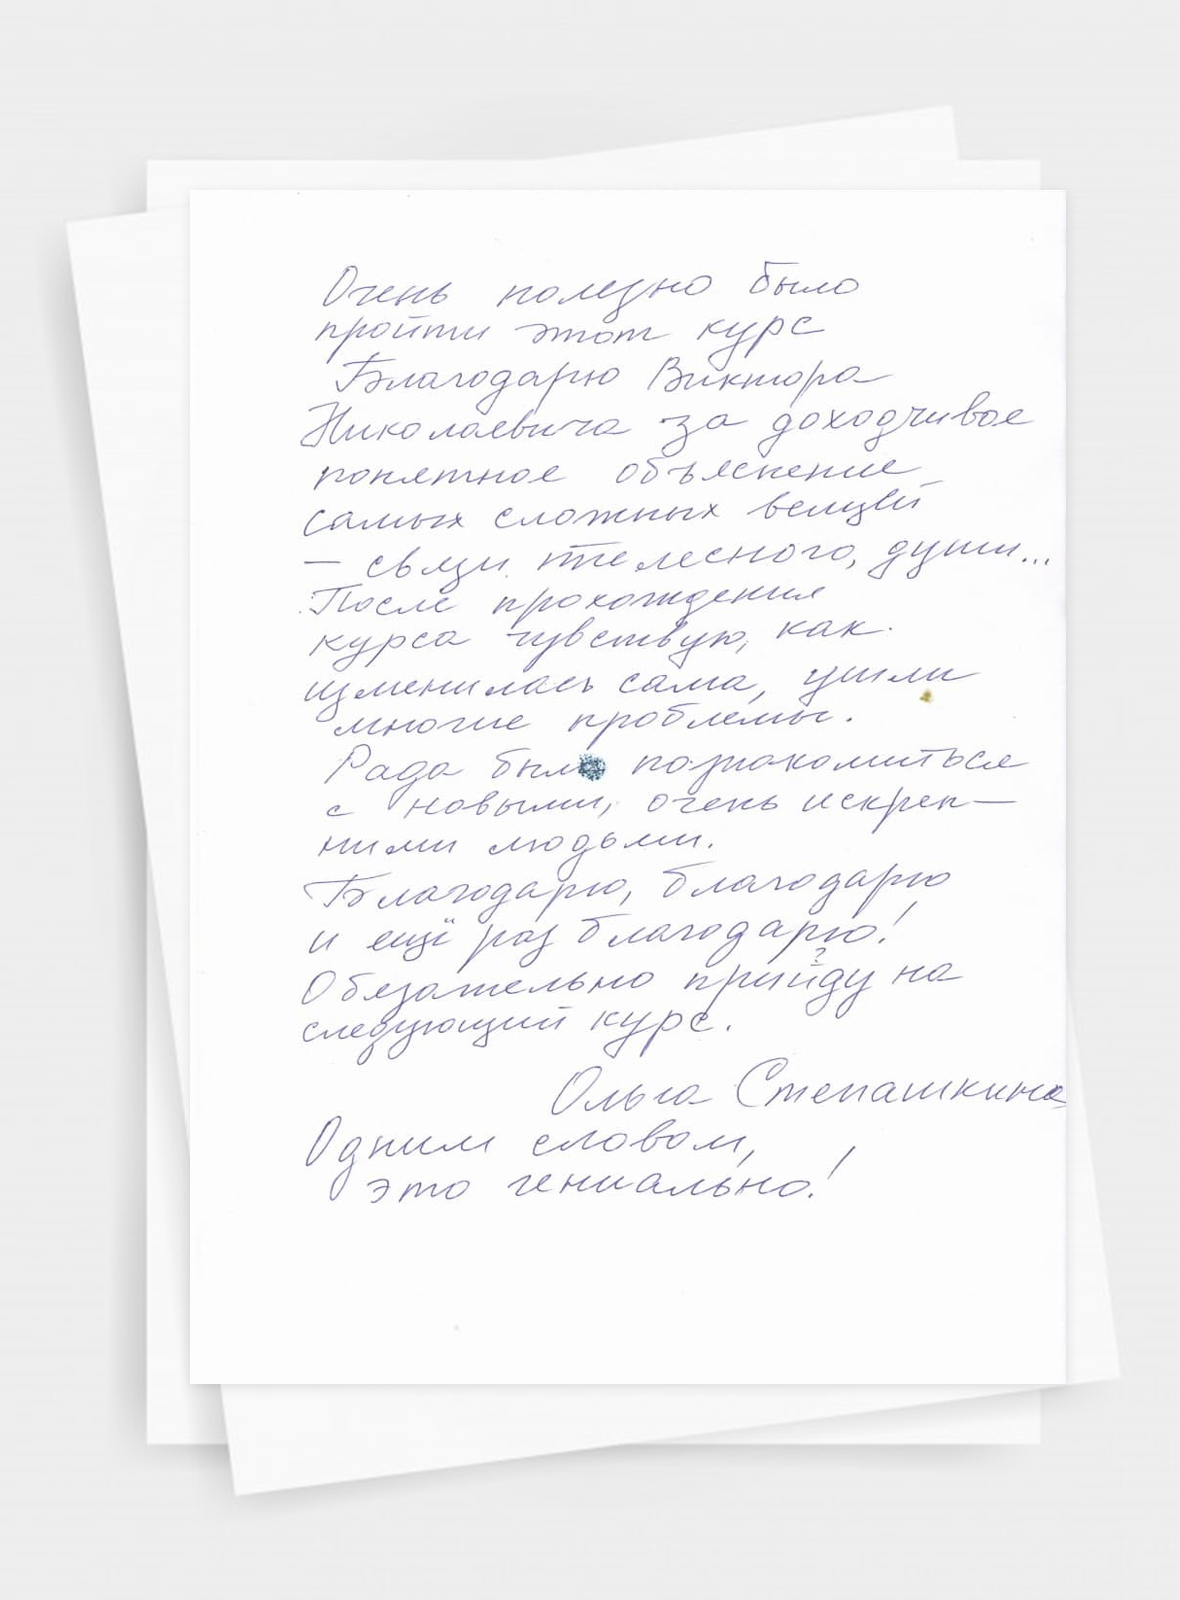 Очень полезно было
пройти этот курс
Благодарю Виктора
Николаевича за доходчивое
понятное объяснение
самых сложных вещей
— связи телесного, души...
После прохождения
курса чувствую, как
изменилась сама, ушли
многие проблемы.
Рада была познакомиться
с новыми, очень искрен-
ними людьми.
Благодарю, благодарю
и ещё раз благодарю!
?
Обязательно прийду на
следующий курс.
Ольга Степашкина
Одним словом,
это гениально!